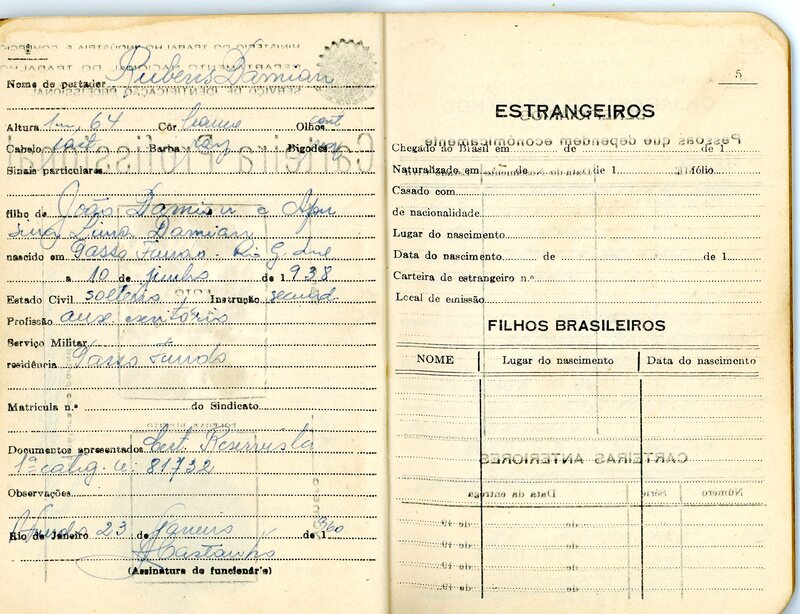 Nome do portador Rubens Damian
Altura 1m,64 Côr branca Olhos cast
Cabelo cast Barba raz Bigodes
Sinais particulares
filho de João Damian e
Lima Damian
nascido em Passo Fundo - Rio G. do Sul
a 10 de junho de 1938
Estado Civil solteiro, Instrução secund.
Profissão aux. escritório
Serviço Militar
residência Passo Fundo
Matricula n.º do Sindicato
Documentos apresentados Cert. Reservista
1ª categ. 81732
Observações
Rio de Janeiro P. Fundo 23 de Janeiro de 1960
(Assinatura do funcionár'o)
5
ESTRANGEIROS
Chegado ao Brasil em de de 1
Naturalizado em de de 1
Casado com
de nacionalidade
Lugar do nascimento
Data do nascimento de de 1
Carteira de estrangeiro n.º
Local de emissão
FILHOS BRASILEIROS
NOME Lugar do nascimento Data do nascimento